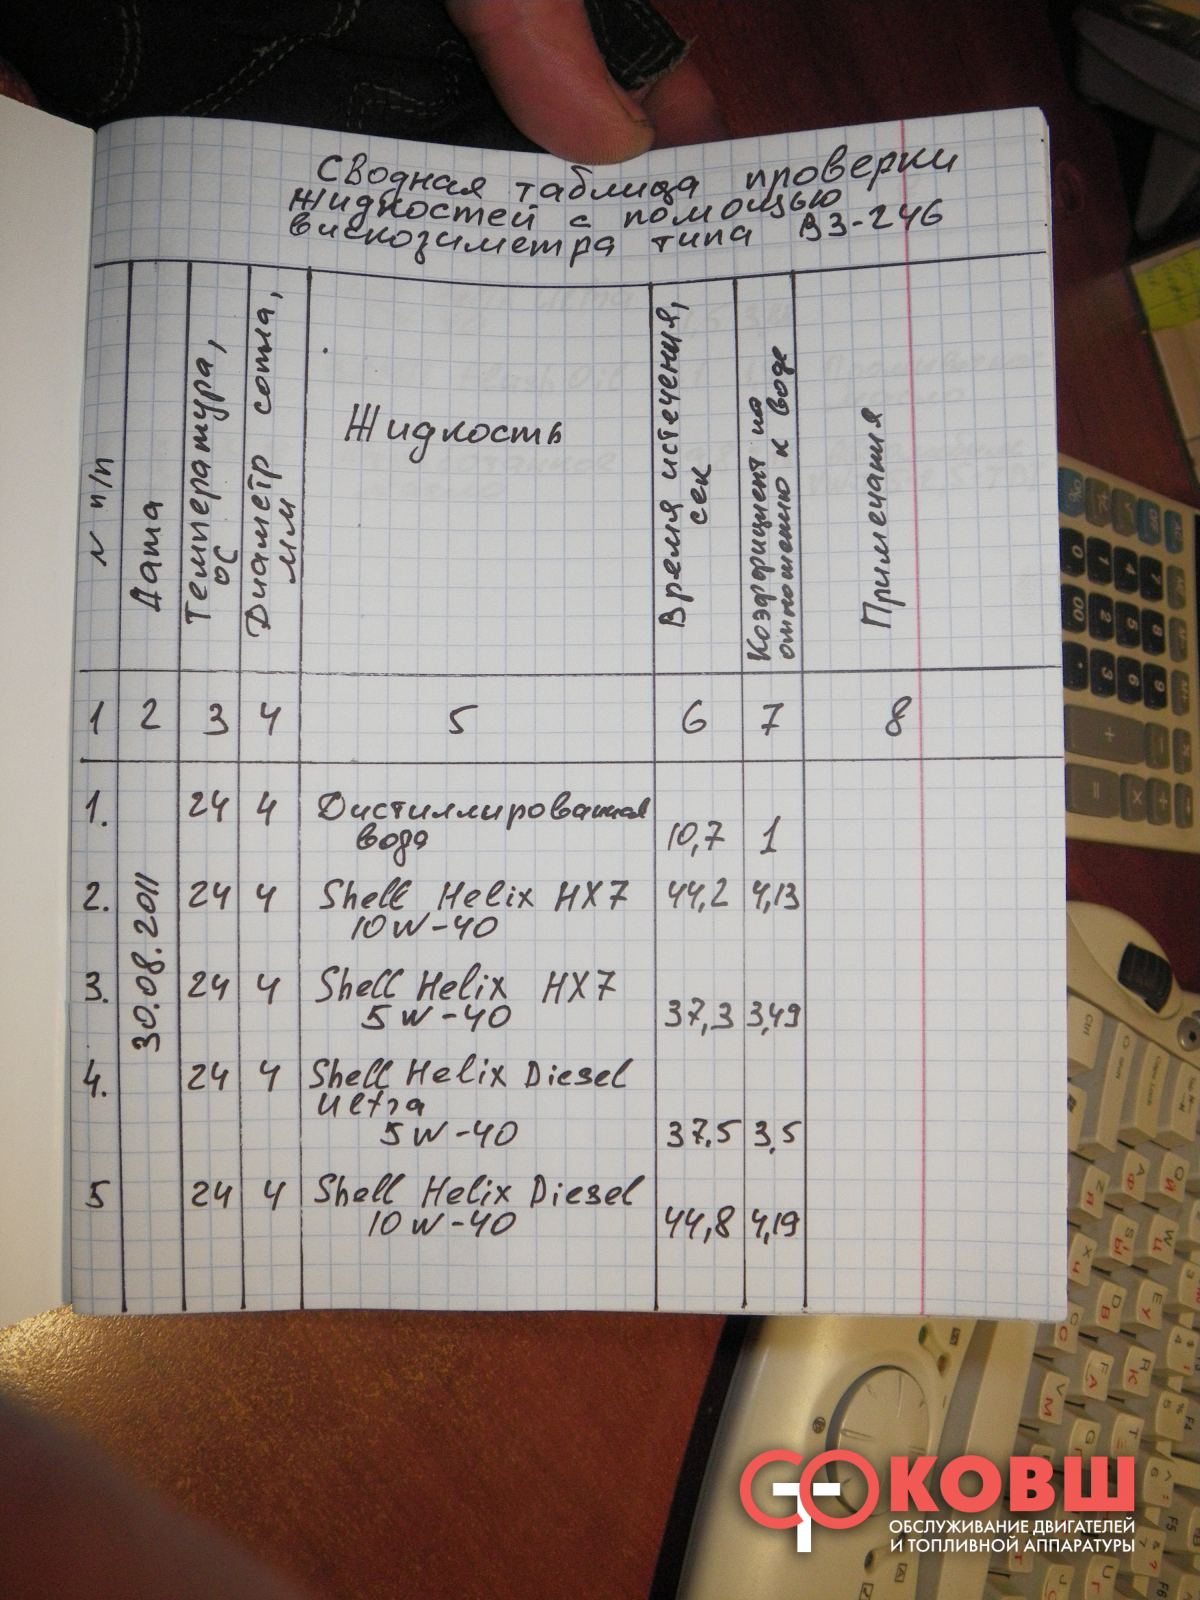 Сводная таблица проверки
жидкостей с помощью
вискозиметра типа ВЗ-246
N п/п
Дата
Температура, °С
Диаметр сопла, мм
Жидкость
Время истечения, сек
Коэффициент по отношению к воде
Примечания
1 2 3 4 5 6 7 8
1. 24 4 Дистиллированная
вода 10,7 1
30.08.2011
2. 24 4 Shell Helix HX7 44,2 4,13
10W-40
3. 24 4 Shell Helix HX7
5W-40 37,3 3,49
4. 24 4 Shell Helix Diesel
Ultra
5W-40 37,5 3,5
5 24 4 Shell Helix Diesel
10W-40 44,8 4,19
СТО КОВШ
ОБСЛУЖИВАНИЕ ДВИГАТЕЛЕЙ
И ТОПЛИВНОЙ АППАРАТУРЫ